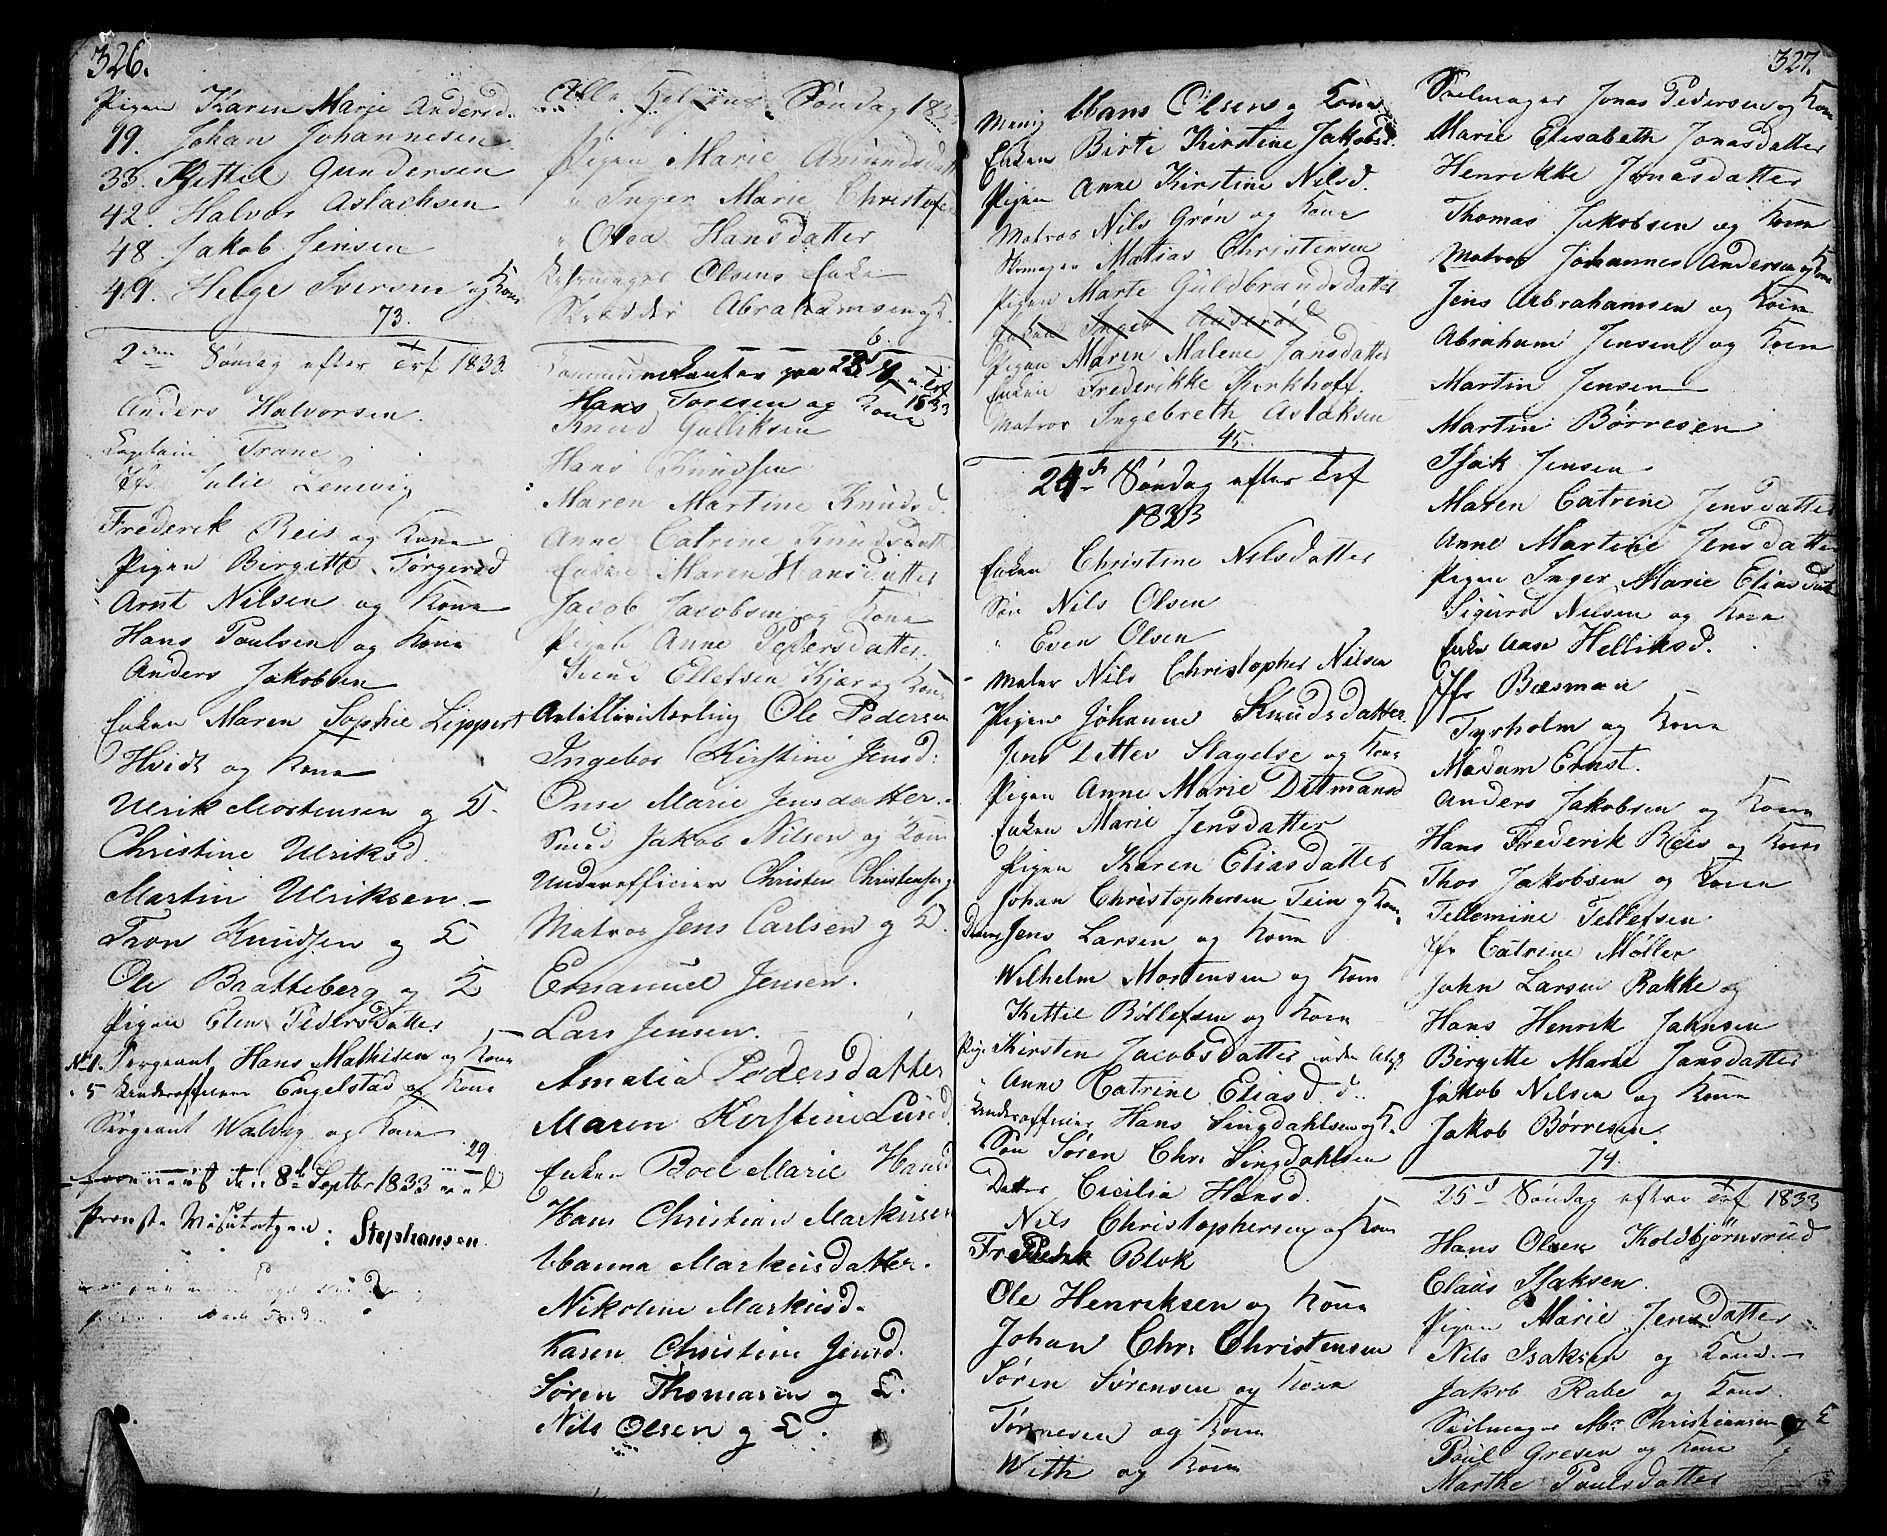 326.
Pigen Karen Marie Andersd.
19. Johan Johannesen
33. Kittil Gundersen
42. Halvor Aslachsen
48. Jakob Jensen
49. Helge Iversen og Kone
73.
2den Søndag efter Trf 1833.
Anders Halvorsen.
Captain Trane
Julie Lenwig
Frederik Reis og Kone
Pigen Birgitte Torgersd
Arnt Nilsen og Kone
Hans Poulsen og Kone
Anders Jakobsen
Enken Maren Sophie Lippert
Hvidt og Kone
Ulrik Mortensen og K.
Christine Ulriksd.
Martin Ulriksen.
Tron Knudsen og K
Ole Bratteberg og K
Pigen Elen Pedersdatter
No 1. Sergeant Hans Mathisen og Kone
5 Underofficeer Engelstad og Kone
Sergeant Walvig og Kone
29.
den 8d Septbr 1833 med
Provste Visitatzen: Stephansen.
Alle Helgens Søndag 183
Pigen Marie Amundsdatt
" Inger Marie Christof
" Olea Hansdatter
Olsens Enke
Skrædder Abrahamsen og K.
6.
Communicanter paa 23d S. e. Trf 1833
Hans Toresen og Kone
Knud Gulliksen
Hans Knudsen
Maren Martine Knudsd.
Anne Catrine Knudsdatt
Enken Maren Hansdatter
Jacob Jacobsen og Kone
Pigen Anne Pedersdatter.
Svend Ellefsen Kjær og Kone
Artilleritærling Ole Pedersen
Ingebor Kirstine Jensd:
One Marie Jensdatter.
Smed Jakob Nilsen og Kone
Underofficier Christen Christensen og
Matros Jens Carlsen og K.
Emanuel Jensen.
Lars Jensen.
Amalia Pedersdatter
Maren Kirstine Lund
Enken Boel Marie Hansd
Hans Christian Markusen
Hanna Markusdatter.
Nikoline Markusd.
Karen Christine Jensd.
Søren Thomasen og K.
Nils Olsen og K.
327.
Hans Olsens Kone
Enken Birte Kirstine Jakobsd.
Pigen Anne Kirstine Nilsd.
Matros Nils Grøn og Kone
Skomager Matias Christensen
Pigen Marte Guldbrandsdatter
Pigen Maren Malene Jansdatter
Enken Frederikke Kirkhoff.
Matros Ingebreth Aslaksen
45.
24d Søndag efter Trf
1833
Enken Christine Nilsdatter
Søn Nils Olsen
" Even Olsen
Maler Nils Christopher Nilsen
Pigen Johanne Knudsdatter.
Jens Ditlev Slagelse og Kone
Pigen Anne Marie Ditmansd
Enken Marie Jensdatter
Pigen Karen Eliasdatter
Johan Christophersen Tein og Kone
Jens Larsen og Kone
Wilhelm Mortensen og Kone
Kittil Bøllefsen og Kone
Pig. Kirsten Jacobsdatter
Anne Catrine Eliasd. d.
Underofficier Hans Lingdahlsen og K.
Søn Søren Chr. Lingdahlsen
Datter Cicilia Hansd.
Nils Christophersen og Kone
Fredrik Blok
Ole Henriksen og Kone
Johan Chr. Christensen
Søren Sørensen og Kone
Tørnesen og Kone
With og Kone
Seilmager Jonas Pedersen og Kone
Marie Elisabeth Jonasdatter
Henrikke Jonasdatter
Thomas Jakobsen og Kone
Matros Johannes Andersen og Kone
Jens Abrahamsen og Kone
Abraham Jensen og Kone
Martin Jensen
Martin Børresen
Isak Jensen
Maren Catrine Jensdatter
Anne Martine Jensdatter
Pigen Inger Marie Eliasdat
Sigurd Nilsen og Kone
Enke Aase Helliksd.
Jfr Bæsman
Tyrholm og Kone
Madam Ernst.
Anders Jakobsen og Kone
Hans Frederik Reis og Kone
Thor Jakobsen og Kone
Tellemine Tellefsen
Jfr Catrine Møller
John Larsen Bakke og
Hans Henrik Johnsen
Birgitte Marie Jansdatter
Jakob Nilsen og Kone
Jakob Børresen.
74.
25d Søndag efter Trf 1833
Hans Olsen Koldbjørnsrud
Claus Isaksen.
Pigen Marie Jensdatter
Nils Isaksen og Kone.
Jakob Rabe og Kone
Seilmager Mr Christiansen og K
Poul Gresen og Kone
Marthe Poulsdatter